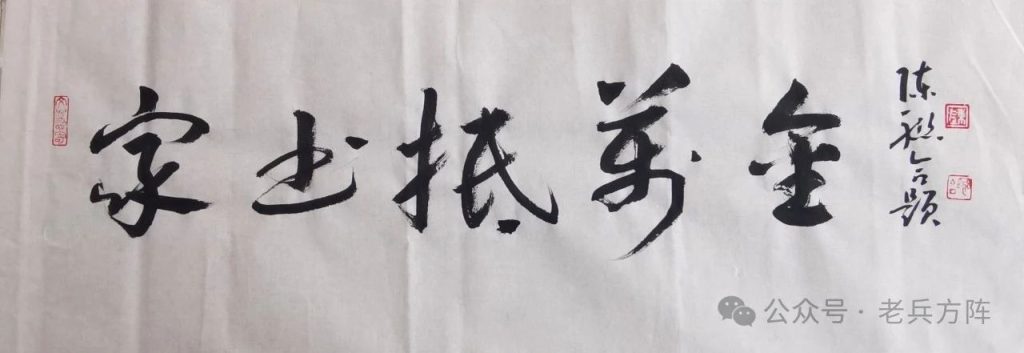 家书抵萬金
陈联合题
公众号 · 老兵方阵